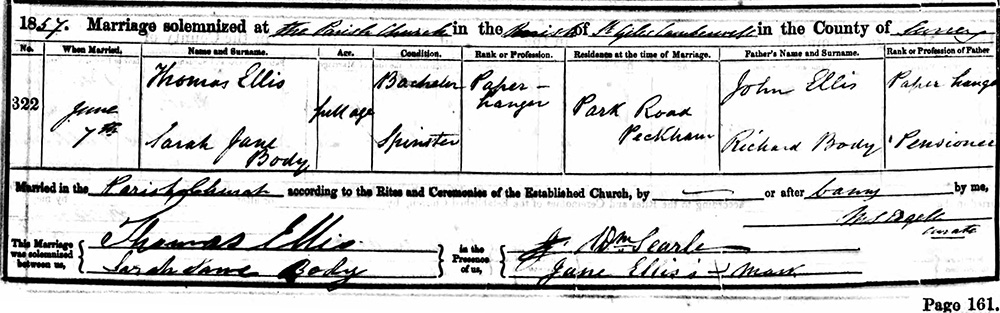 1857. Marriage solemnized at the Parish Church in the Parish of St Giles Camberwell in the County of Surrey
No. When Married. Name and Surname. Age. Condition. Rank or Profession. Residence at the time of Marriage. Father's Name and Surname. Rank or Profession of Father
322 June 7th Thomas Ellis full age Bachelor Paper-hanger Park Road Peckham John Ellis Paper hanger
Sarah Jane Body Spinster Richard Body Pensioner
Married in the Parish Church according to the Rites and Ceremonies of the Established Church, by — or after banns by me,
curate
This Marriage was solemnized between us, Thomas Ellis Sarah Jane Body in the Presence of us, Wm Searle Jane Ellis's + mark
Page 161.